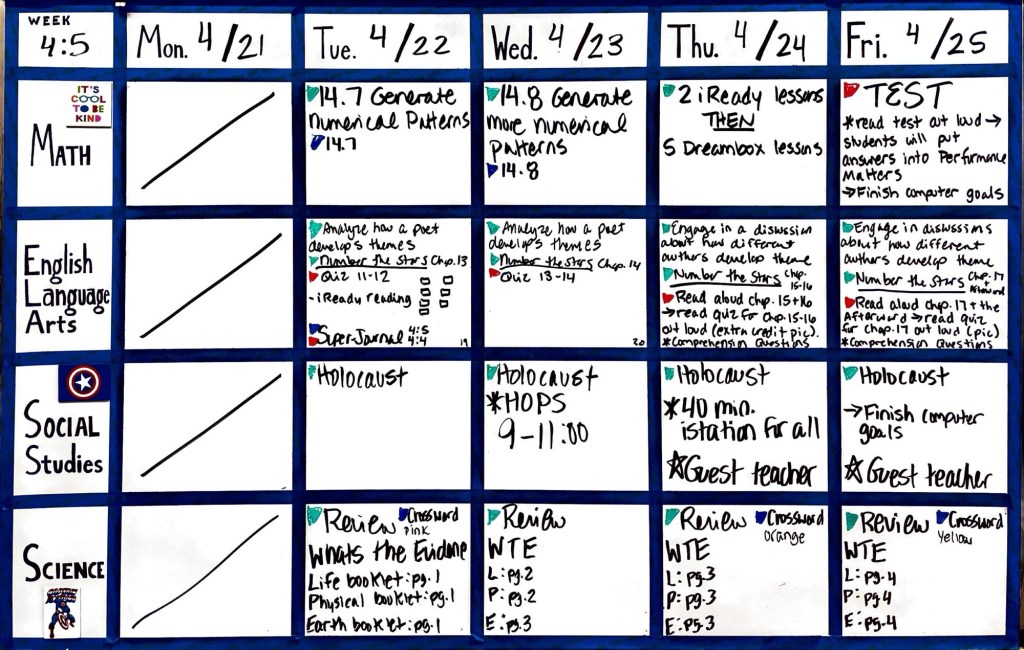 WEEK
4:5
Mon. 4/21
Tue. 4/22
Wed. 4/23
Thu. 4/24
Fri. 4/25
IT'S
COOL
TO BE
KIND
MATH
14.7 Generate
numerical Patterns
14.7
14.8 Generate
more numerical
patterns
14.8
2 iReady lessons
THEN
5 Dreambox lessons
TEST
*read test out loud →
students will put
answers into Performance
Matters
→Finish computer goals
English
Language
Arts
Analyze how a poet
develops themes
Number the Stars Chap. 13
Quiz 11-12
-iReady reading
Super Journal 4:5
4:4
19
Analyze how a poet
develops themes
Number the Stars Chap. 14
Quiz 13-14
20
Engage in a discussion
about how different
authors develop theme
Number the Stars Chp.
15-16
Read aloud chp. 15+16
→read quiz for chp. 15-16
out loud (extra credit pic).
*Comprehension Questions
Engage in discussions
about how different
authors develop theme
Number the Stars Chp. 17
+
Afterword
Read aloud chp. 17 + the
Afterward → read quiz
for chap. 17 out loud (pic)
*Comprehension Questions
SOCIAL
Studies
Holocaust
Holocaust
*HOPS
9-11:00
Holocaust
*40 min.
istation for all
☆Guest teacher
Holocaust
→Finish computer
goals
☆Guest teacher
SCIENCE
Review Crossword
Pink
Whats the Evidence
Life booklet: pg. 1
Physical booklet: pg. 1
Earth booklet: pg. 1
Review
WTE
L: pg. 2
P: pg. 2
E: pg. 3
Review Crossword
orange
WTE
L: pg. 3
P: pg. 3
E: pg. 3
Review Crossword
Yellow
WTE
L: pg. 4
P: pg. 4
E: pg. 4